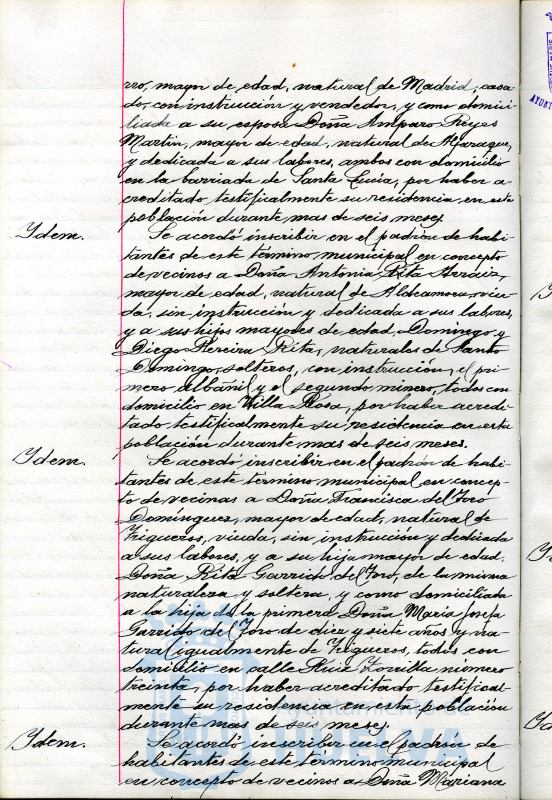 rro, mayor de edad, natural de Madrid, casa-
do, con instrucción y vendedor, y como domici-
liada a su esposa Doña Amparo Reyes
Martin, mayor de edad, natural de Aljaraque,
y dedicada a sus labores, ambos con domicilio
en la barriada de Santa Lucía, por haber a-
creditado testificalmente su residencia en esta
población durante mas de seis meses.
Idem.
Se acordó inscribir en el padrón de habi-
tantes de este termino municipal en concepto
de vecinos a Doña Antonia Rita Arráiz,
mayor de edad, natural de Aldeamoza, viu-
da, sin instrucción y dedicada a sus labores,
y a sus hijos mayores de edad, Domingo y
Diego Pereira Rita, naturales de Santo
Domingo, solteros, con instrucción, el pri-
mero albañil y el segundo minero, todos con
domicilio en Villa Rosa, por haber acredi-
tado testificalmente su residencia en esta
población durante mas de seis meses.
Idem.
Se acordó inscribir en el padrón de habi-
tantes de este termino municipal en concep-
to de vecinas a Doña Francisca del Toro
Domínguez, mayor de edad, natural de
Trigueros, viuda, sin instrucción y dedicada
a sus labores, y a su hija mayor de edad,
Doña Rita Garrido del Toro, de la misma
naturaleza y soltera, y como domiciliada
a la hija de la primera Doña María Josefa
Garrido de Toro de diez y siete años y na-
tural igualmente de Trigueros, todos con
domicilio en calle Ruiz Zorrilla número
treinta, por haber acreditado testifical-
mente su residencia en esta población
durante mas de seis meses.
Idem.
Se acordó inscribir en el padrón de
habitantes de este término municipal
en concepto de vecinos a Doña Mariana
HUELVA